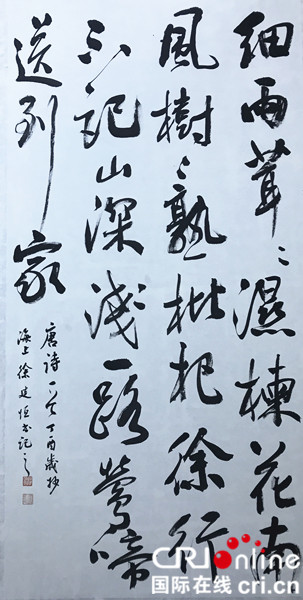 細雨茸〻濕楝花南
風樹〻熟枇杷徐行
不記山深淺一路鶯啼
送到家
唐诗一首丁酉歲杪
海上徐建恒书记之
CRI online
国际在线 cri.cn